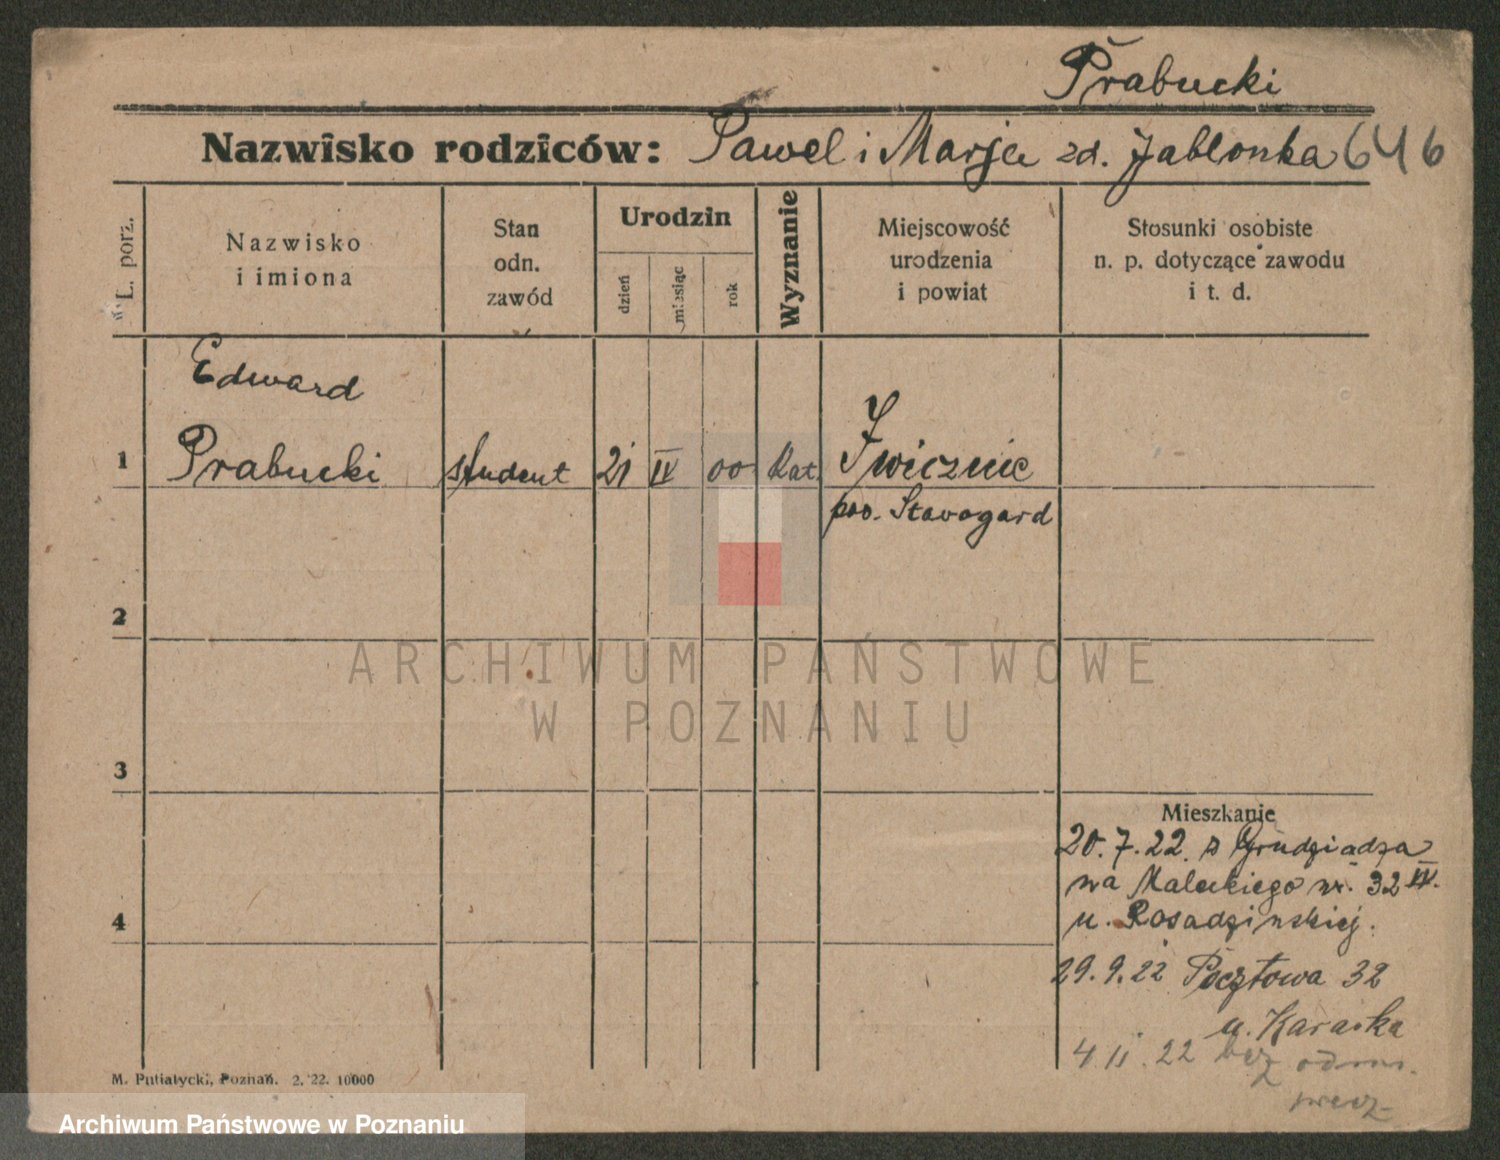 Prabucki
Nazwisko rodziców: Pawel i Marja zd. Jablonka 646
L. porz.
Nazwisko
i imiona
Stan
odn.
zawód
Urodzin
dzień
miesiąc
rok
Wyznanie
Miejscowość
urodzenia
i powiat
Stosunki osobiste
n. p. dotyczące zawodu
i t. d.
Edward
1 Prabucki student 21 IV 00 Kat. Iwicznie
pow. Starogard
2
ARCHIWUM PAŃSTWOWE
W POZNANIU
3
Mieszkanie
20.7.22. z Grudziądza
na Maleckiego nr. 32 IV.
4
u. Rosadzińskiej.
29.9.22 Pocztowa 32
u. Karaska
4 II. 22 bez
M. Putiatycki, Poznań. 2. 22. 10000
Archiwum Państwowe w Poznaniu